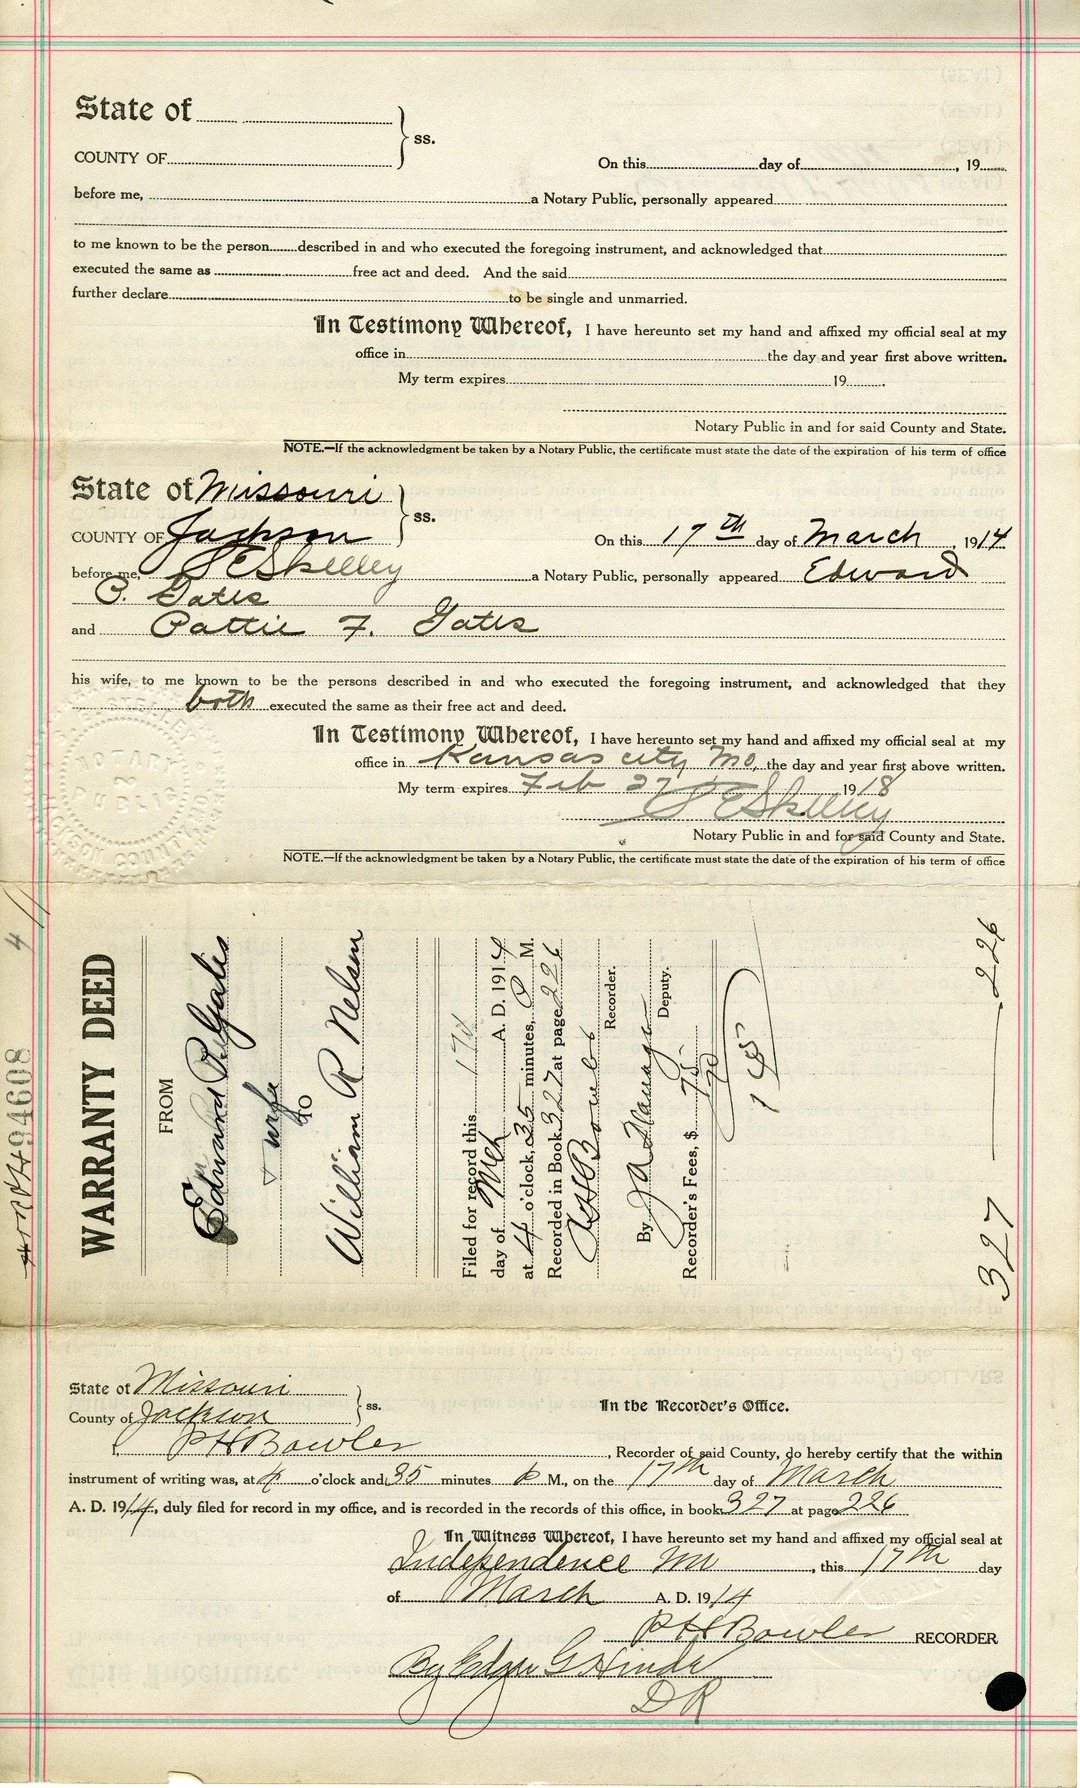 State of
COUNTY OF ss.
On this day of , 19
before me, a Notary Public, personally appeared
to me known to be the person described in and who executed the foregoing instrument, and acknowledged that
executed the same as free act and deed. And the said
further declare to be single and unmarried.
In Testimony Whereof, I have hereunto set my hand and affixed my official seal at my
office in the day and year first above written.
My term expires 19 .
Notary Public in and for said County and State.
NOTE.—If the acknowledgment be taken by a Notary Public, the certificate must state the date of the expiration of his term of office
State of Missouri
COUNTY OF Jackson ss.
On this 17th day of March , 1914
before me, E Skelley a Notary Public, personally appeared Edward
P. Gates
and Pattie F. Gates
his wife, to me known to be the persons described in and who executed the foregoing instrument, and acknowledged that they
both executed the same as their free act and deed.
In Testimony Whereof, I have hereunto set my hand and affixed my official seal at my
office in Kansas city Mo, the day and year first above written.
My term expires Feb 27 1918
E Skelley
Notary Public in and for said County and State.
NOTE.—If the acknowledgment be taken by a Notary Public, the certificate must state the date of the expiration of his term of office
E. SKELLEY
NOTARY PUBLIC
JACKSON COUNTY, MO.
94608
WARRANTY DEED
FROM
Edward P. Gates
& wife
TO
William R Nelson
Filed for record this 17th
day of Mch A. D. 1914
at 4 o'clock, 35 minutes, P M.
Recorded in Book 327 at page 226
Recorder.
By Deputy.
Recorder's Fees, $ 75
70
145
327 — 226
State of Missouri
County of Jackson ss.
In the Recorder's Office.
I, P H Bowler , Recorder of said County, do hereby certify that the within
instrument of writing was, at 4 o'clock and 35 minutes P M., on the 17th day of March
A. D. 1914, duly filed for record in my office, and is recorded in the records of this office, in book 327 at page 226
In Witness Whereof, I have hereunto set my hand and affixed my official seal at
Independence Mo , this 17th day
of March A. D. 1914
P H Bowler RECORDER
By Edgar G Hinde
D R